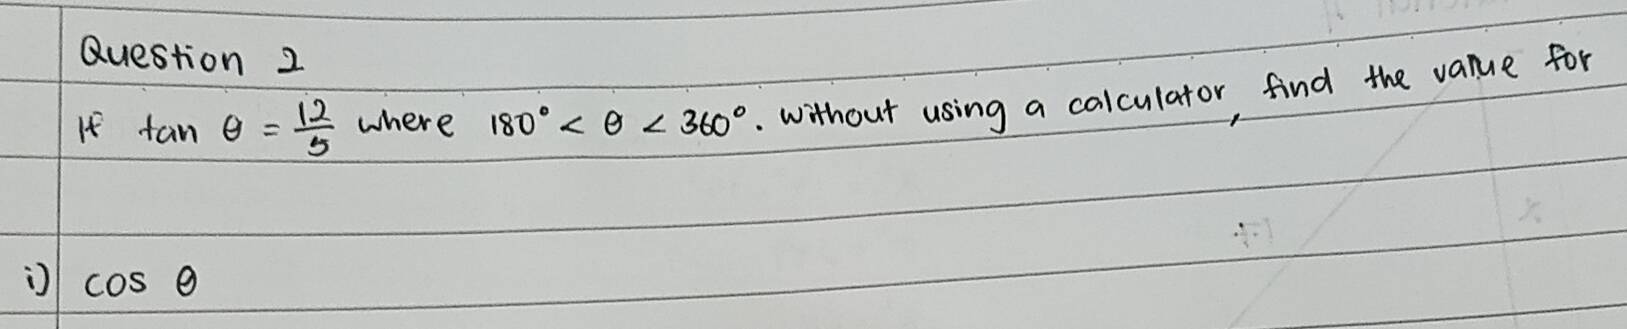 Question 2
If tan θ = 12/5 where 180° < θ < 360°. Without using a calculator, find the value for
i) cos θ